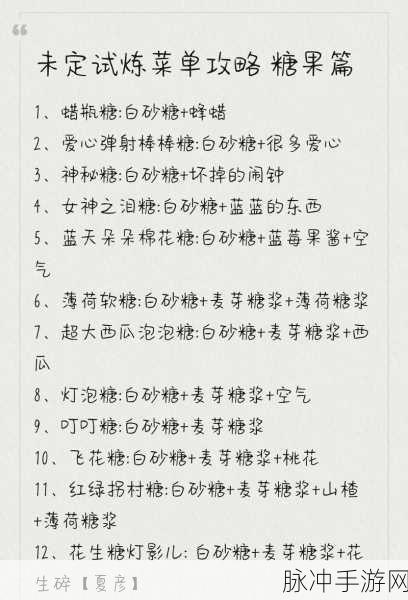 未定试炼菜单攻略 糖果篇
1、蜡瓶糖:白砂糖+蜂蜡
2、爱心弹射棒棒糖:白砂糖+很多爱心
3、神秘糖:白砂糖+坏掉的闹钟
4、女神之泪糖:白砂糖+蓝蓝的东西
5、蓝天朵朵棉花糖:白砂糖+蓝莓果酱+空
气
6、薄荷软糖:白砂糖+麦芽糖浆+薄荷糖浆
7、超大西瓜泡泡糖:白砂糖+麦芽糖浆+西
瓜
8、灯泡糖:白砂糖+麦芽糖浆+空气
9、叮叮糖:白砂糖+麦芽糖浆
10、飞花糖:白砂糖+麦芽糖浆+桃花
11、红绿拐村糖:白砂糖+麦芽糖浆+山楂
+薄荷糖浆
12、花生糖灯影儿: 白砂糖+麦芽糖浆+花
生碎【夏彦】
脉冲手游网